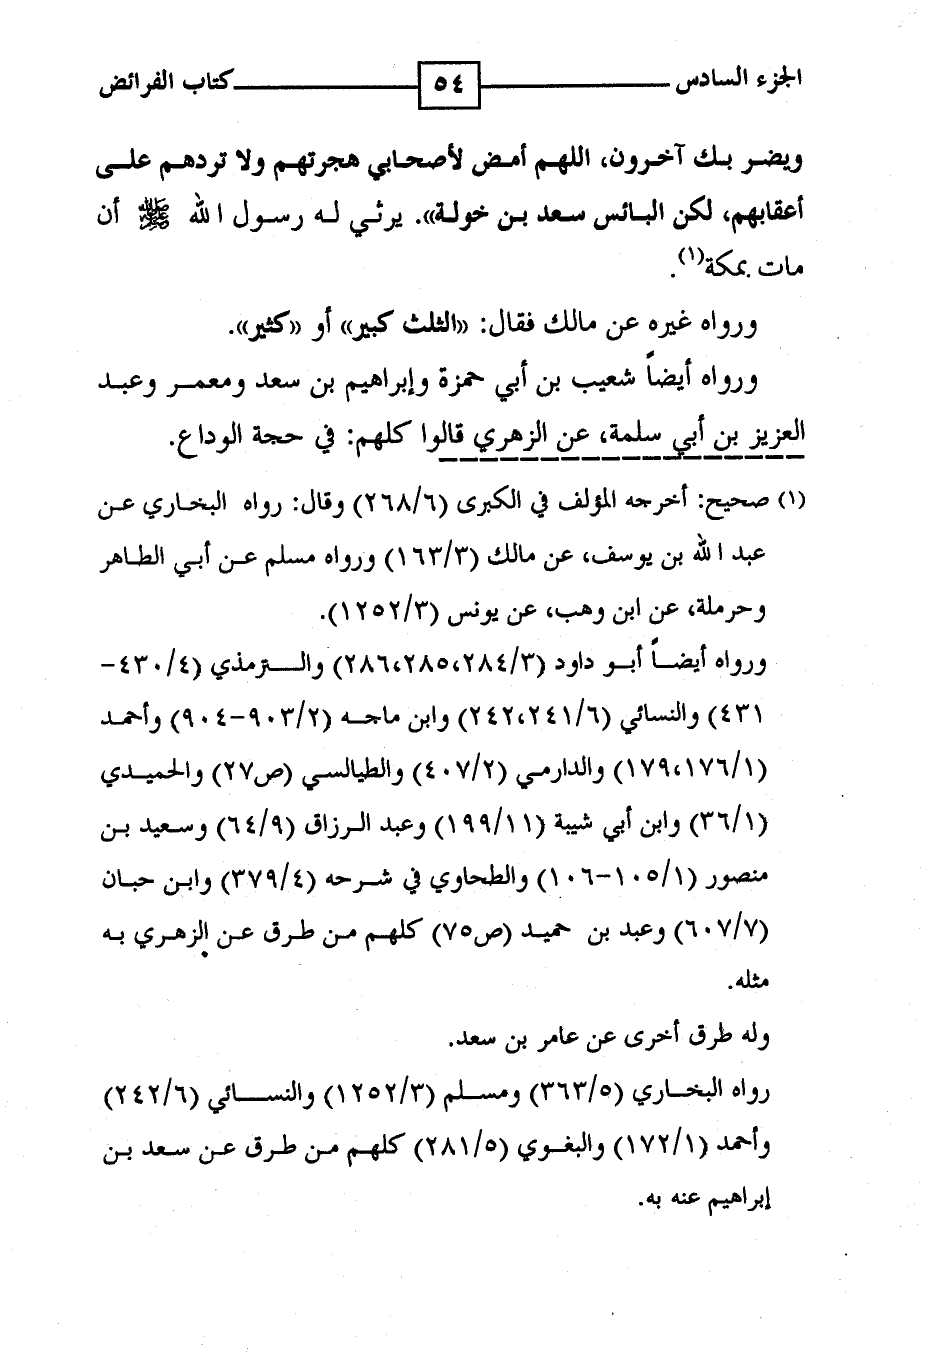 الجزء السادس ٥٤ كتاب الفرائض
ويضر بك آخرون، اللهم أمض لأصحابي هجرتهم ولا تردهم على
أعقابهم، لكن البائس سعد بن خولة». يرثي له رسول الله ﷺ أن
مات بمكة(١).
ورواه غيره عن مالك فقال: «الثلث كبير» أو «كثير».
ورواه أيضاً شعيب بن أبي حمزة وإبراهيم بن سعد ومعمر وعبد
العزيز بن أبي سلمة، عن الزهري قالوا كلهم: في حجة الوداع.
(١) صحيح: أخرجه المؤلف في الكبرى (٢٦٨/٦) وقال: رواه البخاري عن
عبد الله بن يوسف، عن مالك (١٦٣/٣) ورواه مسلم عن أبي الطاهر
وحرملة، عن ابن وهب، عن يونس (١٢٥٢/٣).
ورواه أيضاً أبو داود (٢٨٤/٣،٢٨٥،٢٨٦) والترمذي (٤٣٠/٤-
٤٣١) والنسائي (٢٤١/٦،٢٤٢) وابن ماجه (٩٠٣/٢-٩٠٤) وأحمد
(١٧٦/١،١٧٩) والدارمي (٤٠٧/٢) والطيالسي (ص٢٧) والحميدي
(٣٦/١) وابن أبي شيبة (١٩٩/١١) وعبد الرزاق (٦٤/٩) وسعيد بن
منصور (١٠٥/١-١٠٦) والطحاوي في شرحه (٣٧٩/٤) وابن حبان
(٦٠٧/٧) وعبد بن حميد (ص٧٥) كلهم من طرق عن الزهري به
مثله.
وله طرق أخرى عن عامر بن سعد.
رواه البخاري (٣٦٣/٥) ومسلم (١٢٥٢/٣) والنسائي (٢٤٢/٦)
وأحمد (١٧٢/١) والبغوي (٢٨١/٥) كلهم من طرق عن سعد بن
إبراهيم عنه به.